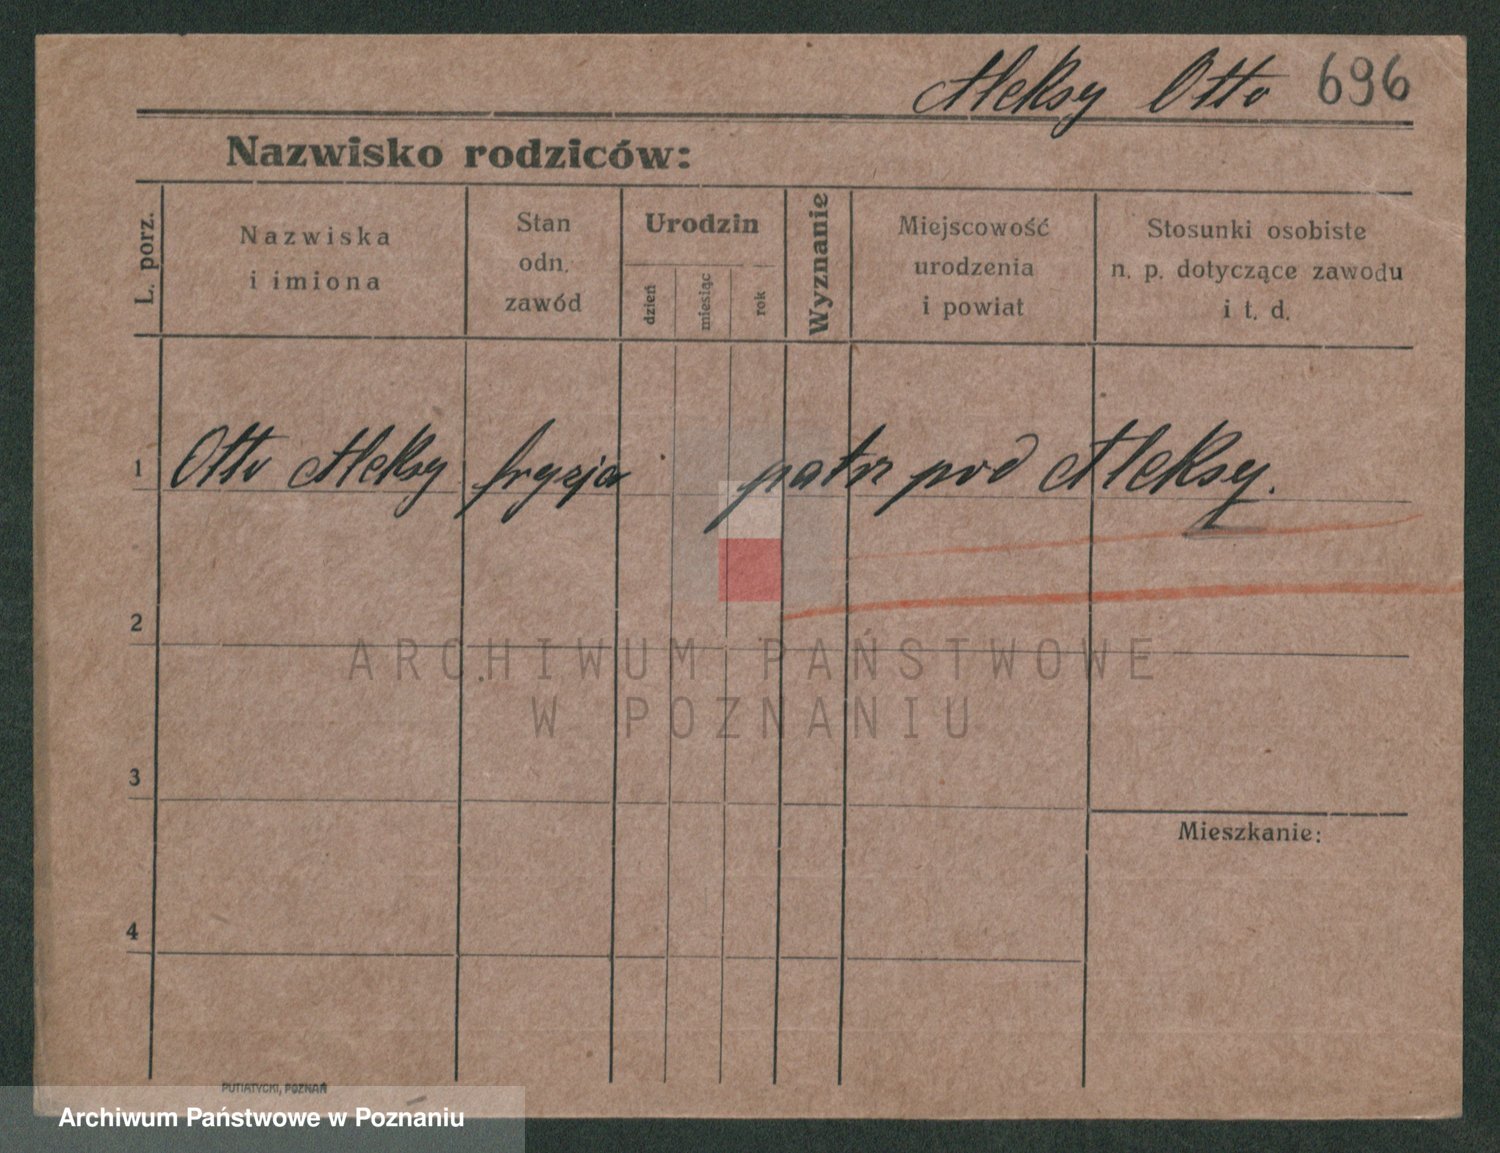 Aleksy Otto 696
Nazwisko rodziców:
L. porz.
Nazwiska
i imiona
Stan
odn.
zawód
Urodzin
dzień
miesiąc
rok
Wyznanie
Miejscowość
urodzenia
i powiat
Stosunki osobiste
n. p. dotyczące zawodu
i t. d.
1 Otto Aleksy fryzja patrz pod Aleksy.
2
ARCHIWUM PAŃSTWOWE
W POZNANIU
3
Mieszkanie:
4
PUTIATYCKI, POZNAŃ
Archiwum Państwowe w Poznaniu